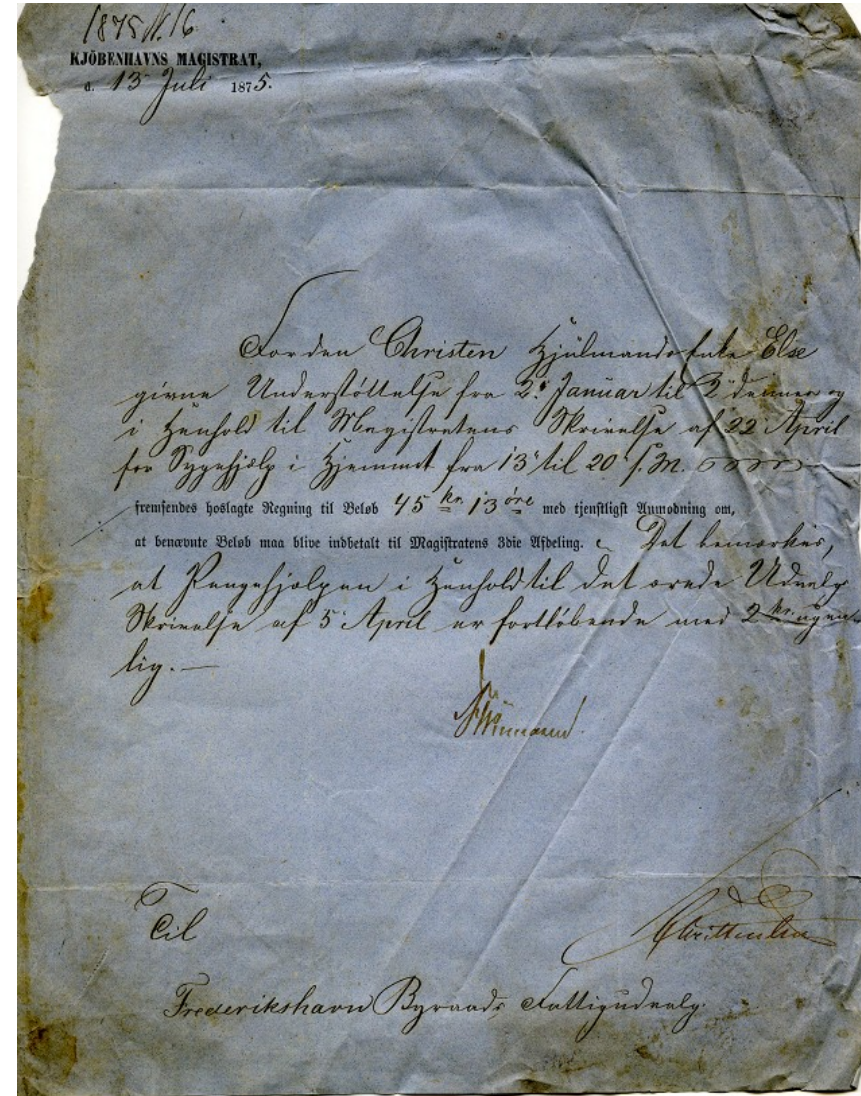 1875 N. 16.
KJÖBENHAVNS MAGISTRAT,
d. 13 Juli 1875.
For den Christen Hjulmands Enke Else
givne Understöttelse fra 2. Januar til 2 dennes og
i Henhold til Magistratens Skrivelse af 22 April
for Sygehjælp i Hjemmet fra 13 til 20 s. M.
fremsendes hoslagte Regning til Beløb 45 kr. 13 øre med tjenstligst Anmodning om,
at benævnte Beløb maa blive indbetalt til Magistratens 3die Afdeling. Det bemærkes,
at Pengehjælpen i Henhold til det ærede Udvalgs
Skrivelse af 5 April er fortløbende med 2 kr. ugent
lig. —
Til
Frederikshavn Byraads Fattigudvalg.